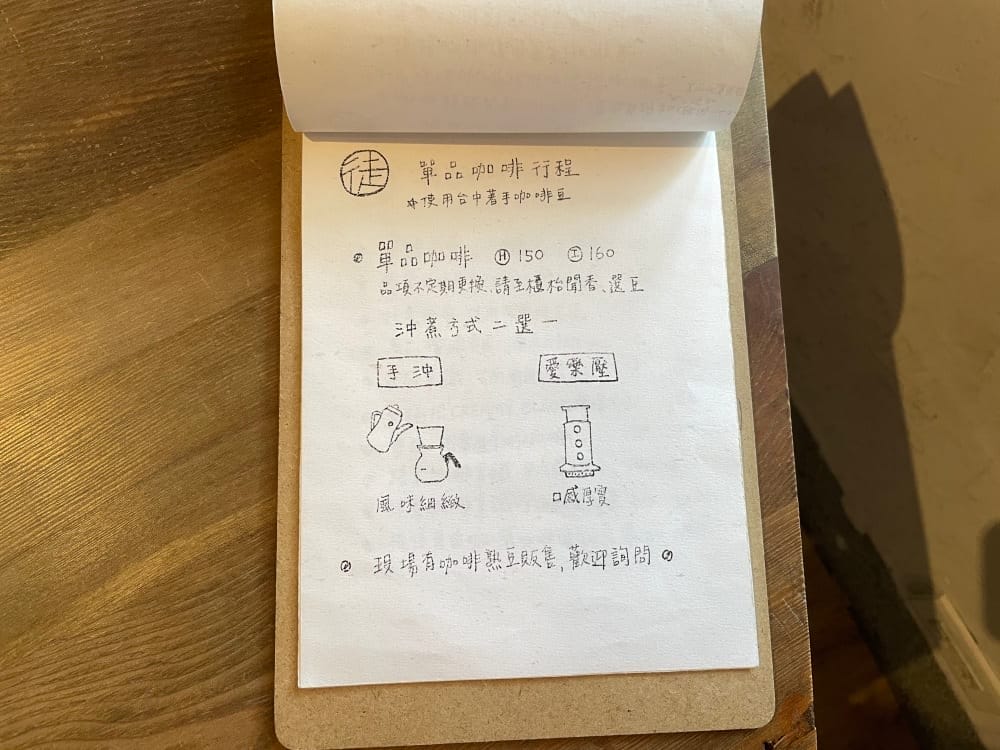 徒 單品咖啡行程
*使用台中著手咖啡豆
單品咖啡 Ⓗ150 Ⓘ160
品項不定期更換、請至櫃枱聞香、選豆
沖煮方式二選一
手沖 愛樂壓
風味細緻 口感厚實
現場有咖啡熟豆販售,歡迎詢問